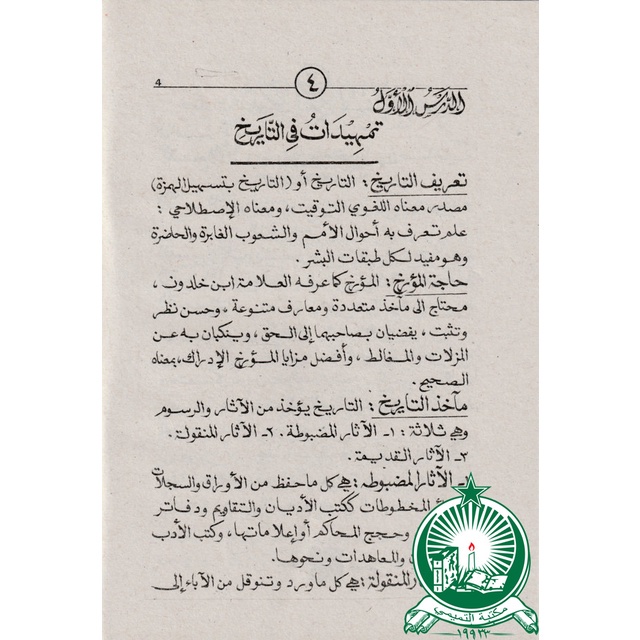 4
٤
الدرس الأول
تمهيدات في التاريخ
تعريف التاريخ : التاريخ أو (التاريخ بتسهيل الهمزة)
مصدر معناه اللغوي التوقيت، ومعناه الإصطلاحي :
علم تعرف به أحوال الأمم والشعوب الغابرة والحاضرة
وهو مفيد لكل طبقات البشر .
حاجة المؤرخ : المؤرخ كما عرفه العلامة ابن خلدون ،
محتاج الى مآخذ متعددة ومعارف متنوعة ، وحسن نظر
وتثبت ، يفضيان بصاحبهما إلى الحق ، وينكبان به عن
المزلات والمغالط ، وأفضل مزايا المؤرخ الإدراك، بمعناه
الصحيح .
مآخذ التاريخ : التاريخ يؤخذ من الآثار والرسوم
وهي ثلاثة : ١- الآثار المضبوطة . ٢- الآثار المنقولة .
٣- الآثار القديمة .
١- الآثار المضبوطة : هي كل ما حفظ من الأوراق والسجلات
المخطوطات ككتب الأديان والتقاويم ودفاتر
وحجج المحاكم أو إعلاماتها ، وكتب الأدب
والمعاهدات ونحوها .
المنقولة : هي كل ما ورد وتنوقل من الآباء إلى
مكتبة التميمي
١٩٩٣